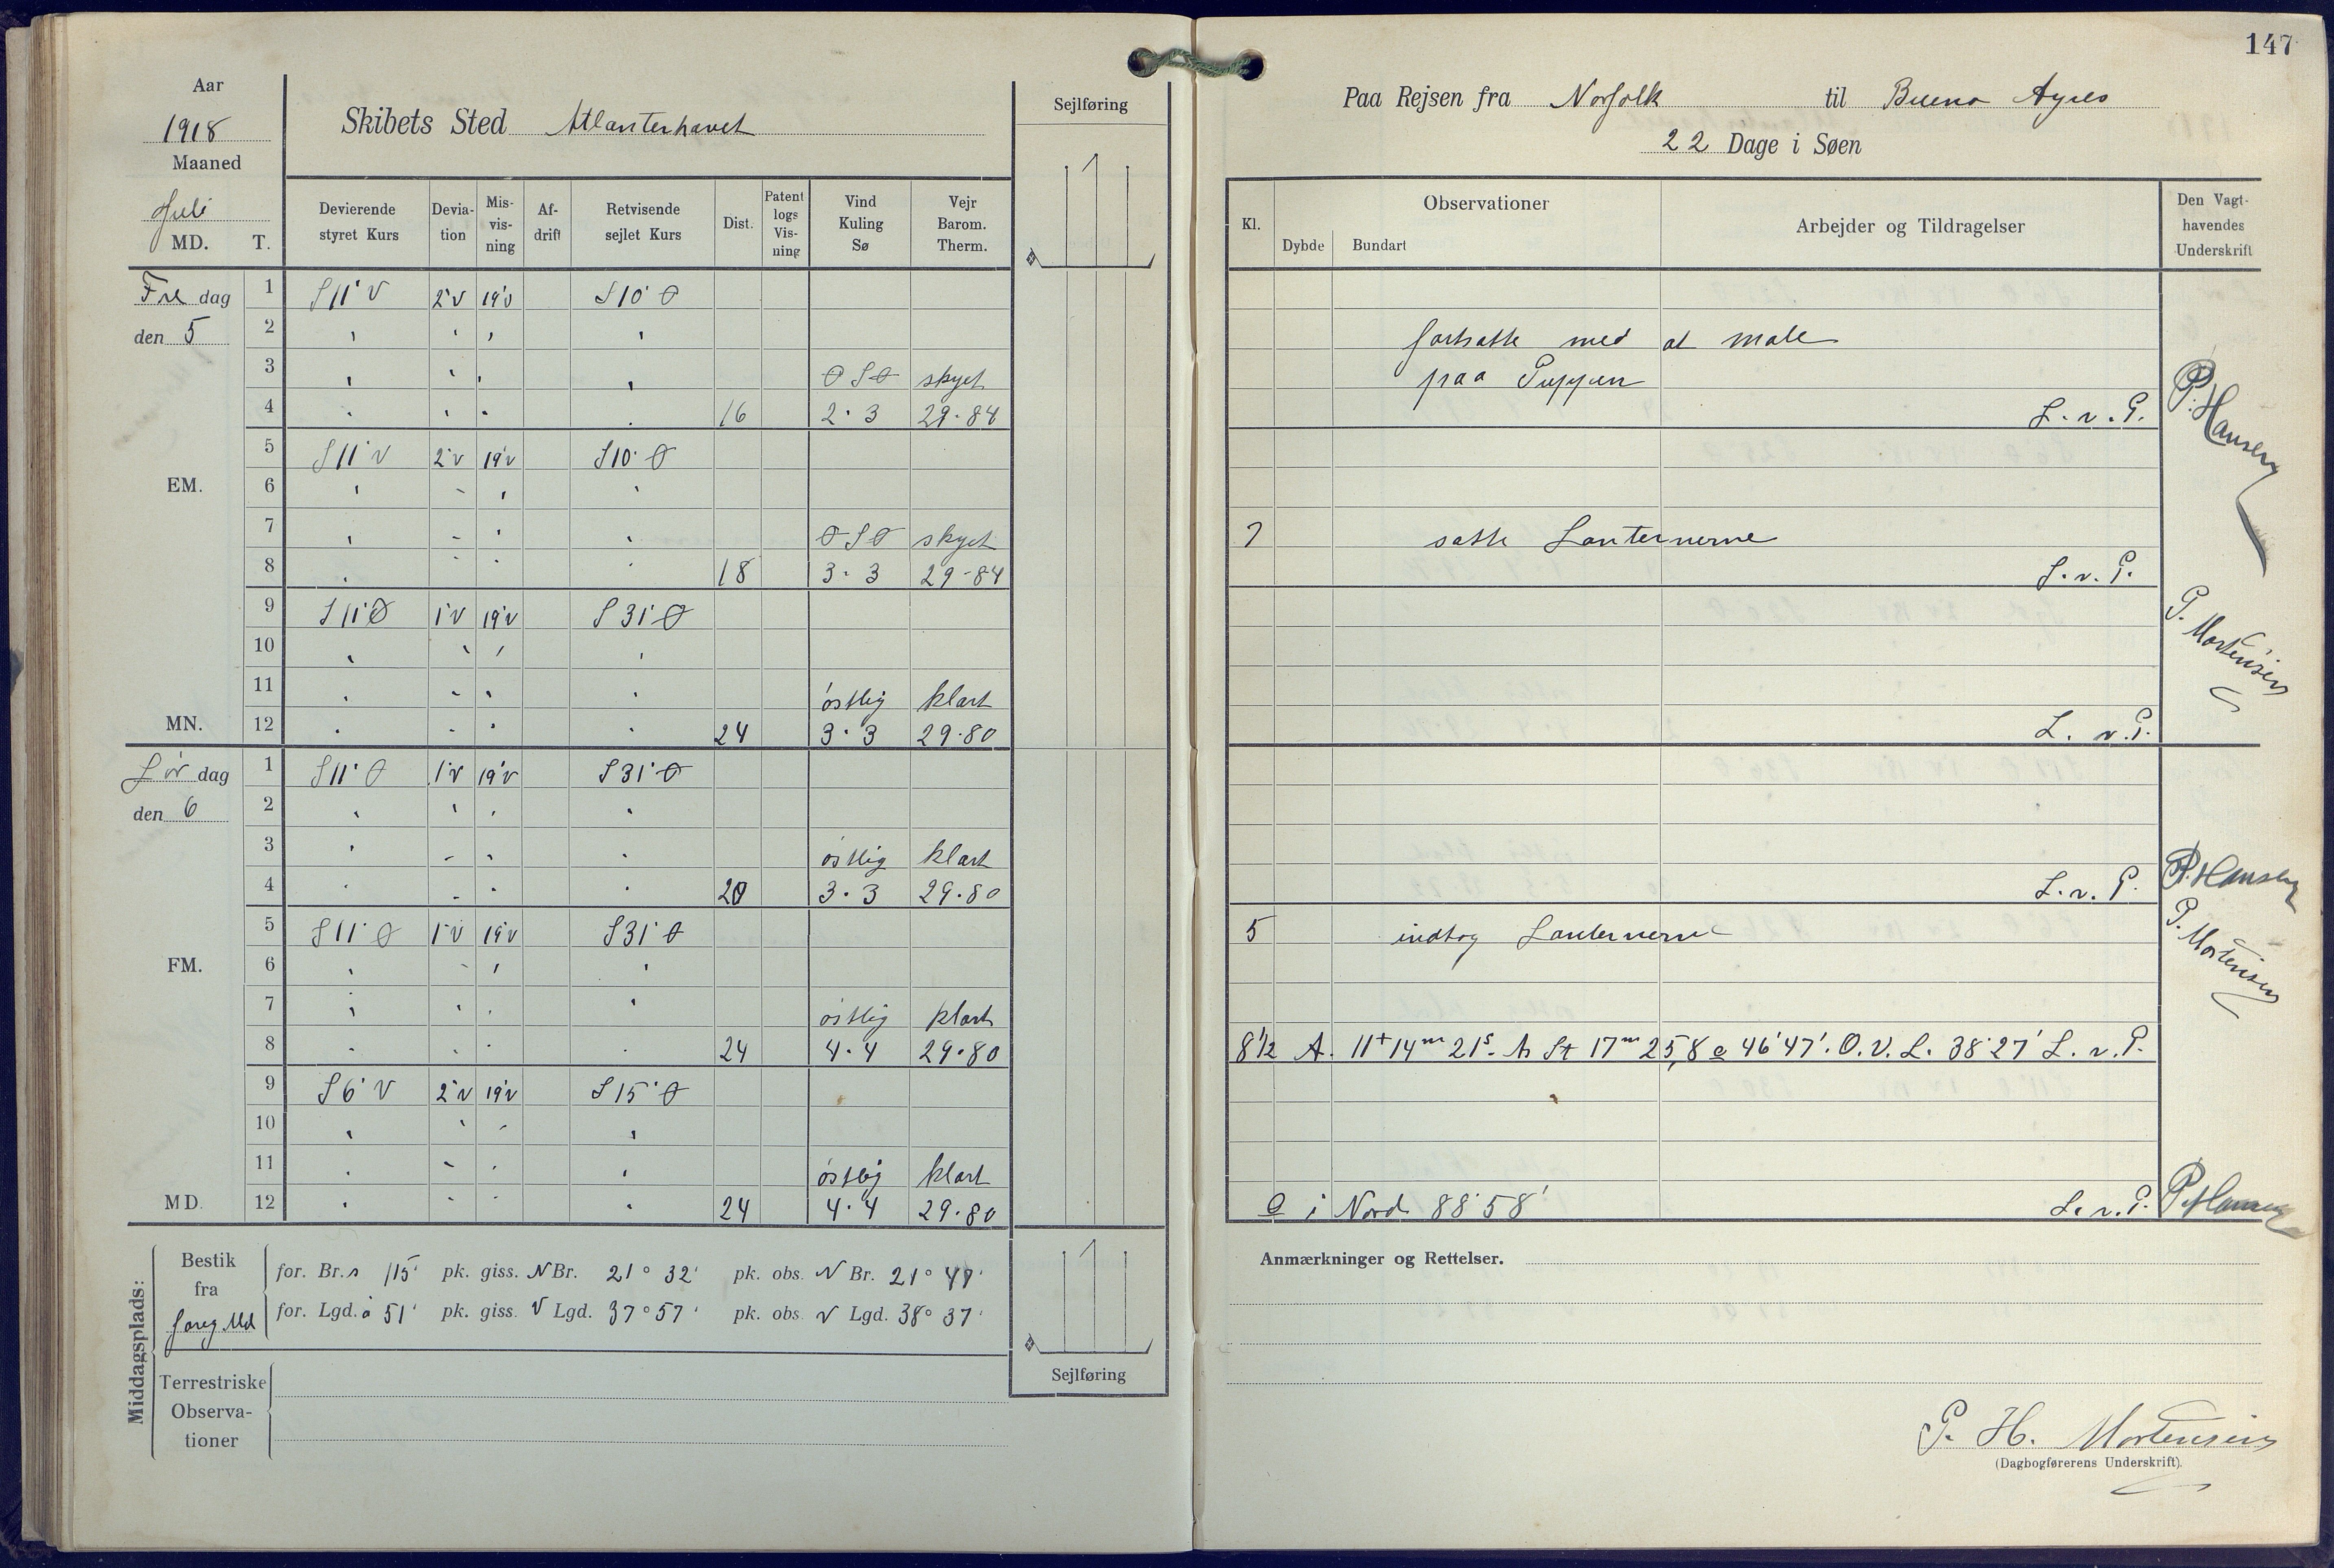 147
Aar
1918
Maaned
Juli
MD. T.
Skibets Sted Atlanterhavet
Sejlføring
Paa Rejsen fra Norfolk til Bueno Ayres
22 Dage i Søen
Devierende styret Kurs
Devia-tion
Mis-vis-ning
Af-drift
Retvisende sejlet Kurs
Dist.
Patent logs Vis-ning
Vind Kuling Sø
Vejr Barom. Therm.
Kl.
Observationer
Dybde Bundart
Arbejder og Tildragelser
Den Vagt-havendes Underskrift
Fre dag 1 S11°V 2°V 19°V S10°Ø
den 5 2 " " " " fortsatte med at male
3 " " " " ØSØ skyet paa Puppen
4 " " " " 16 2·3 29·84 L.v.P. P. Hansen
5 S11°V 2°V 19°V S10°Ø
EM. 6 " " " "
7 " " " " ØSØ skyet 7 satte Lanternerne
8 " " " " 18 3·3 29·84 L.v.P.
9 S11°Ø 1°V 19°V S31°Ø P. Mortensen
10 " " " "
11 " " " " östlig klart
MN. 12 " " " " 24 3·3 29·80 L.v.P.
Lör dag 1 S11°Ø 1°V 19°V S31°Ø
den 6 2 " " " "
3 " " " " östlig klart
4 " " " " 20 3·3 29·80 L.v.P. P. Hansen
5 S11°Ø 1°V 19°V S31°Ø 5 indtog Lanternerne P. Mortensen
FM. 6 " " " "
7 " " " " östlig klart
8 " " " " 24 4·4 29·80 8½ A. 11t 14m 21s. 17m 25,8 46°47'. O.V.L. 38°27' L.v.P.
9 S6°V 2°V 19°V S15°Ø
10 " " " "
11 " " " " östlig klart
MD. 12 " " " " 24 4·4 29·80 i Nord 88°58' L.v.P. P. Hansen
Middagsplads:
Bestik fra foreg. Md
for. Br. s 115' pk. giss. N Br. 21° 32' pk. obs. N Br. 21° 47'
for. Lgd. ö 51' pk. giss. V Lgd. 37° 57' pk. obs. V Lgd. 38° 37'
Terrestriske Observa-tioner
Sejlføring
Anmærkninger og Rettelser.
P. H. Mortensen
(Dagbogførerens Underskrift).